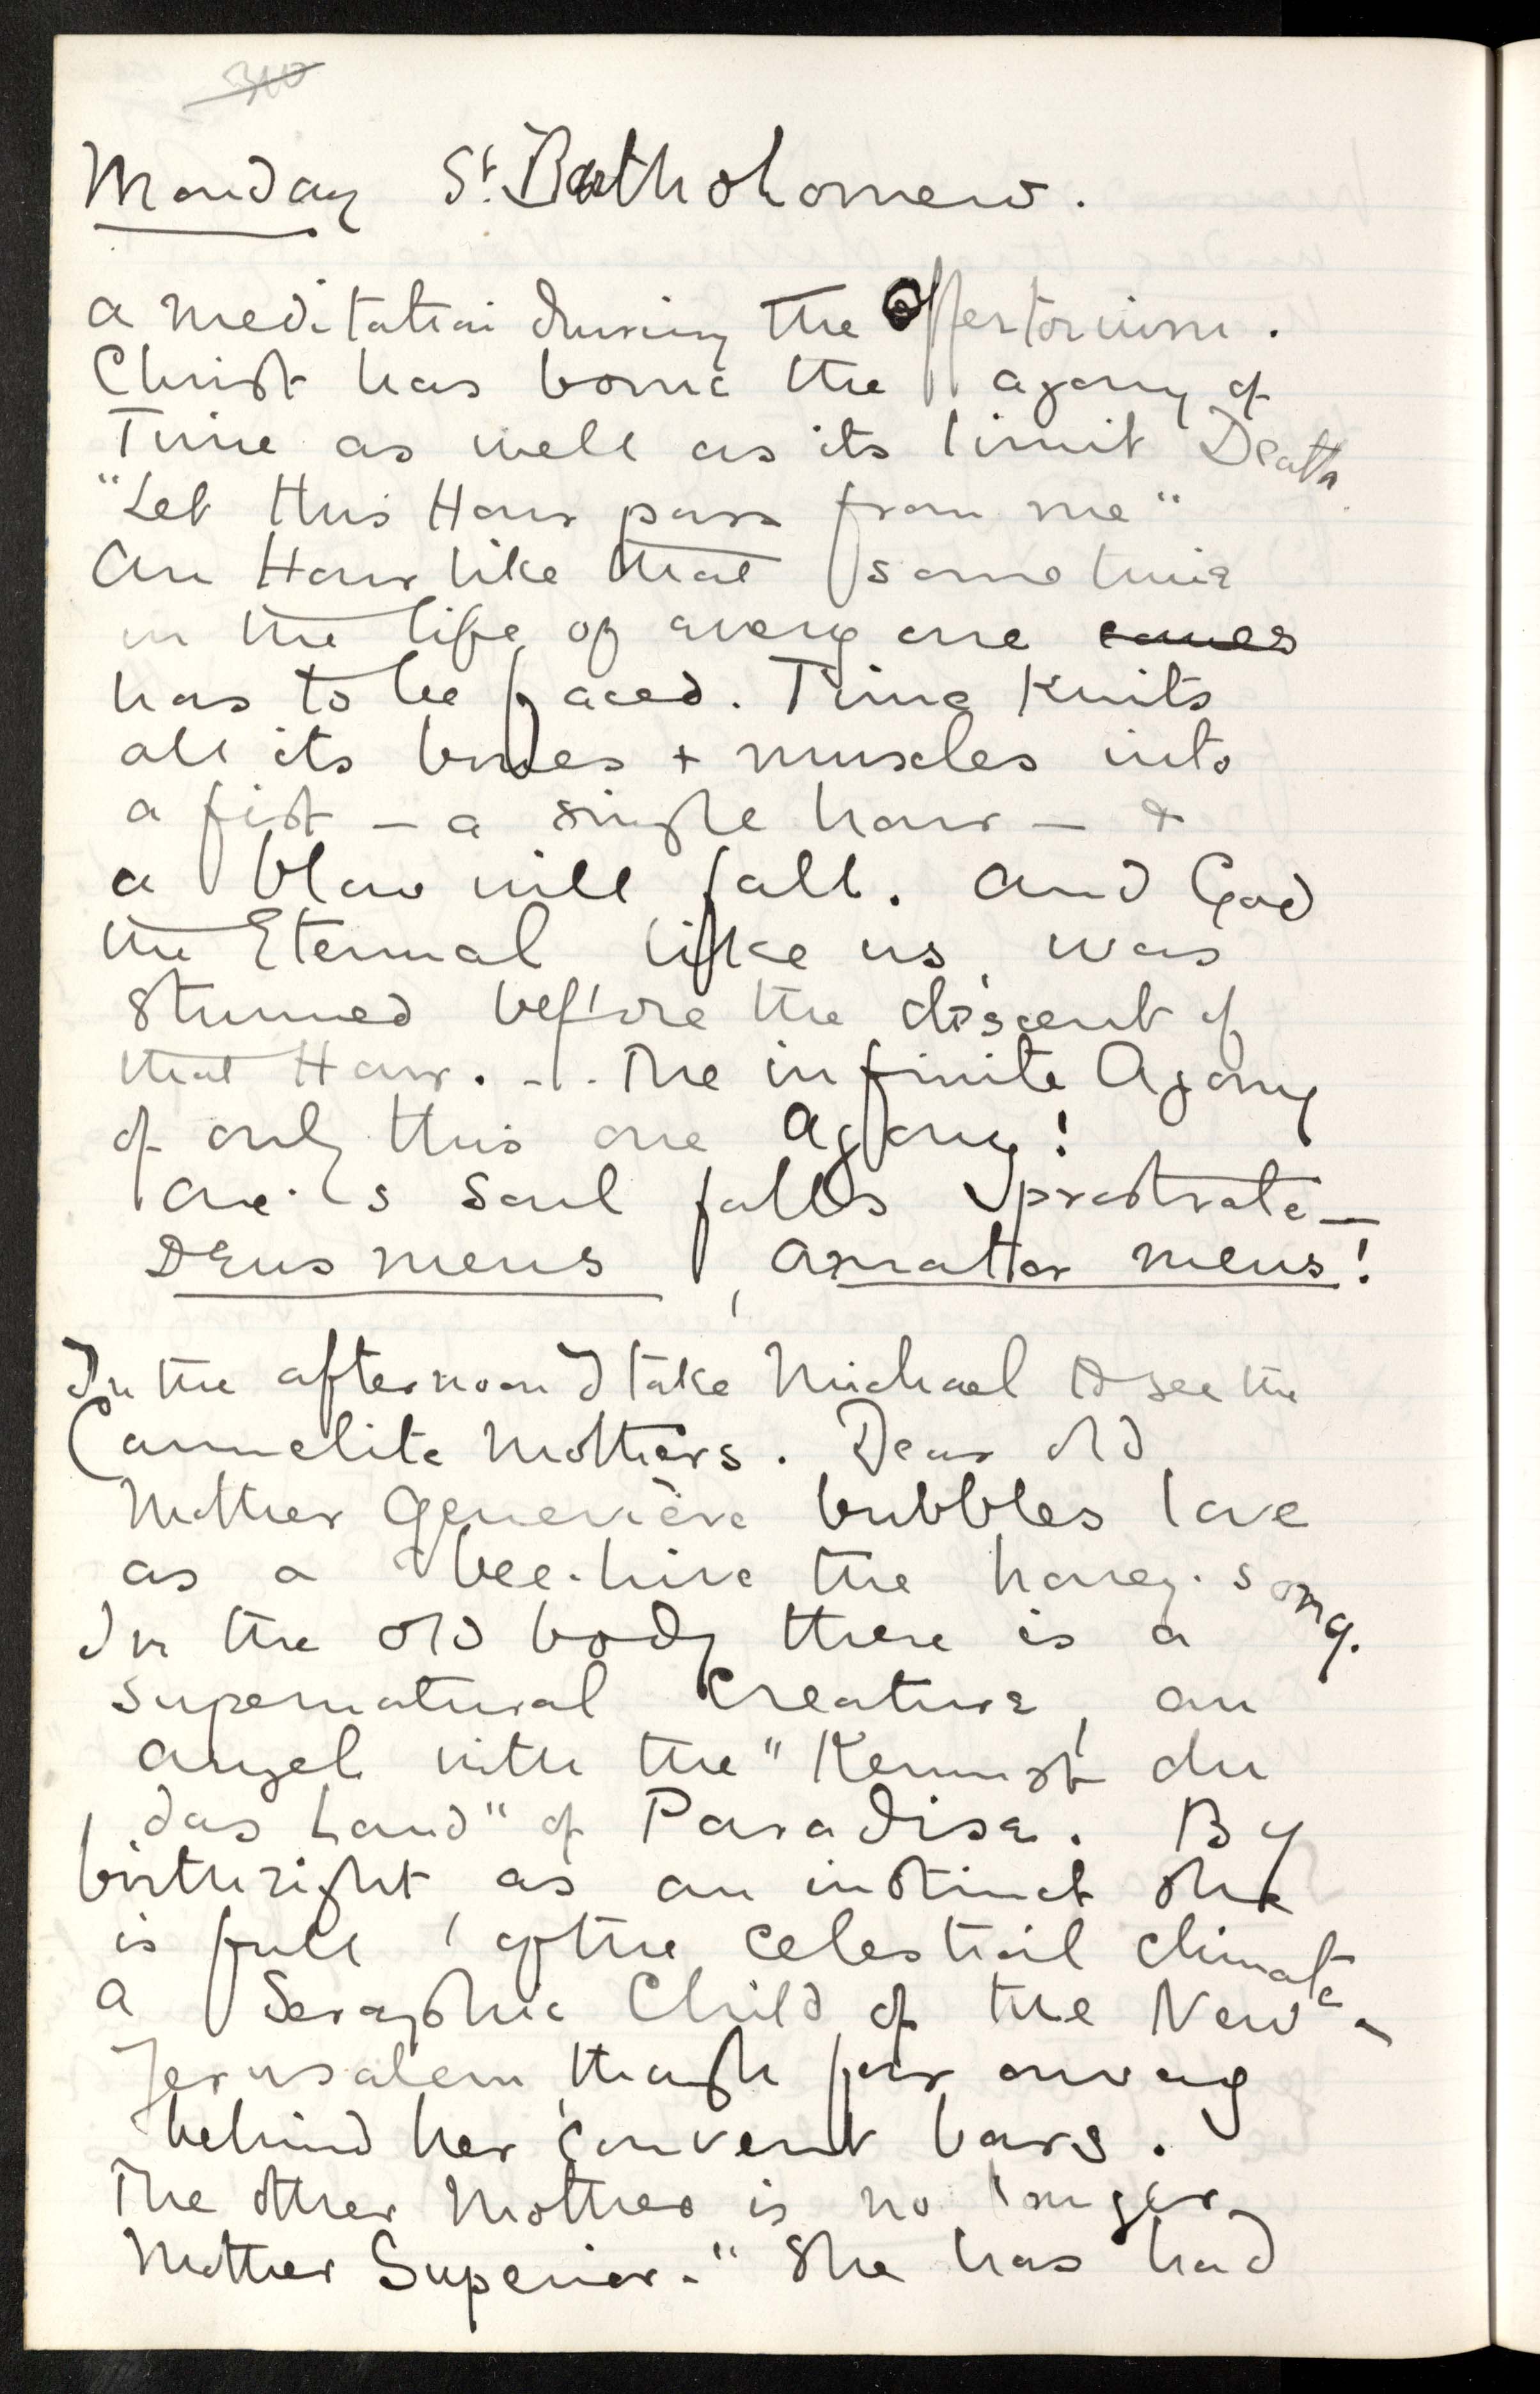 310
Monday St. Bartholomew.
a meditation during the Offertorium.
Christ has borne the agony of
Time as well as its limit Death
"Let this Hour pass from me"
An Hour like that sometime
in the life of every one comes
has to be faced. Time knits
all its bones + muscles into
a fist – a single hour – &
a blow will fall. And God
the Eternal like us, was
stunned before the discent of
that Hour. – . The infinite Agony
of only this one Agony!
One's soul falls prostrate –
Deus meus, Amator meus!
In the afternoon I take Michael to see the
Carmelite Mothers. Dear old
Mother Geneviève bubbles love
as a bee-hive the honey-song.
In the old body there is a
supernatural creature, an
angel with the "Kennst du
das Land" of Paradise. By
birthright as an instinct she
is full of the celestial climate –
a Seraphic Child of the New
Jerusalem, though far away
behind her convent bars.
The other Mother is no longer
Mother Superior." She has had